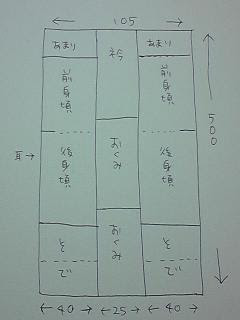 105
あまり
衿
あまり
前身頃
前身頃
500
おくみ
耳→
後身頃
後身頃
おくみ
そで
そで
40
25
40